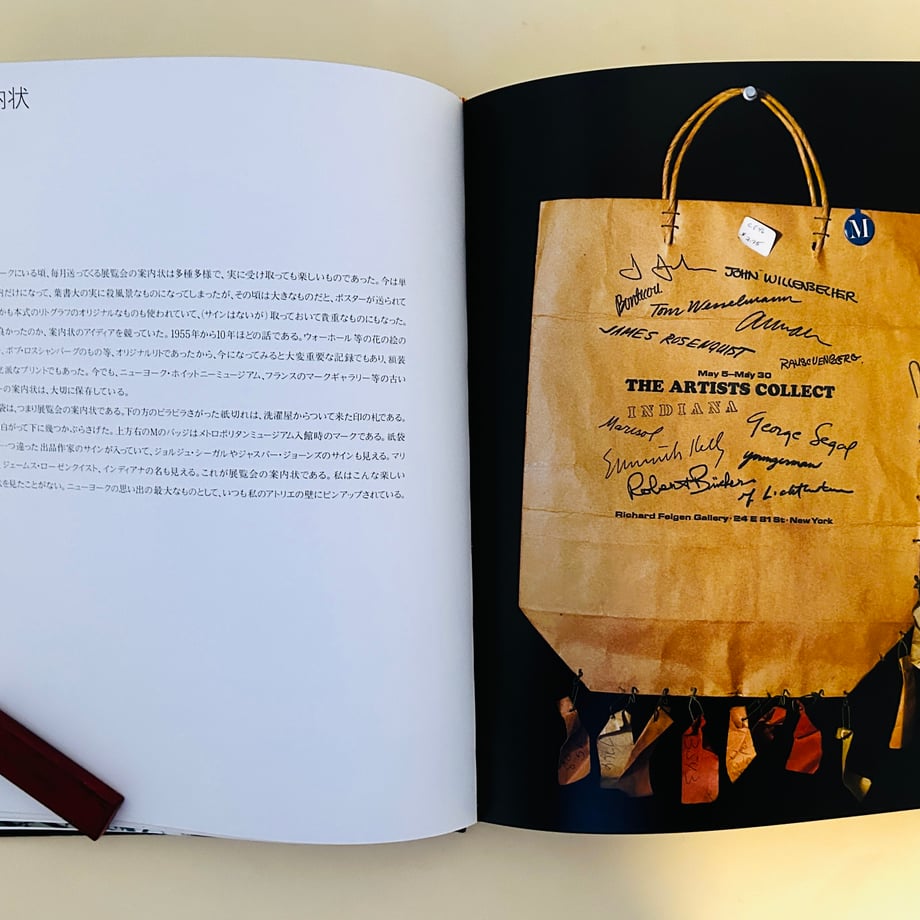 内状
ークにいる頃、毎月送ってくる展覧会の案内状は多種多様で、実に受け取っても楽しいものであった。今は単
内だけになって、葉書大の実に殺風景なものになってしまったが、その頃は大きなものだと、ポスターが送られて
かも本式のリトグラフのオリジナルなものも使われていて、(サインはないが)取っておいて貴重なものにもなった。
良かったのか、案内状のアイディアを競っていた。1955年から10年ほどの話である。ウォーホール等の花の絵の
、ボブ・ロスシャンバーグのもの等、オリジナルリトであったから、今になってみると大変重要な記録でもあり、額装
立派なプリントでもあった。今でも、ニューヨーク・ホイットニーミュージアム、フランスのマークギャラリー等の古い
ーの案内状は、大切に保存している。
袋は、つまり展覧会の案内状である。下の方のピラピラさがった紙切れは、洗濯屋からついて来た印の札である。
白がって下に幾つかぶらさげた。上方右のMのバッジはメトロポリタンミュージアム入館時のマークである。紙袋
一つ違った出品作家のサインが入っていて、ジョルジュ・シーガルやジャスパー・ジョーンズのサインも見える。マリ
、ジェームス・ローゼンクイスト、インディアナの名も見える。これが展覧会の案内状である。私はこんな楽しい
を見たことがない。ニューヨークの思い出の最大なものとして、いつも私のアトリエの壁にピンアップされている。
M
JOHN WILLENBECHER
Bontecou
Tom Wesselmann
JAMES ROSENQUIST
RAUSCHENBERG
May 5–May 30
THE ARTISTS COLLECT
INDIANA
Marisol
George Segal
youngerman
Robert Birelin
rf Lichtenstein
Richard Feigen Gallery · 24 E 81 St · New York